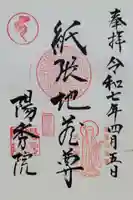 奉拝 令和七年四月五日
紙張地蔵尊
陽秀院